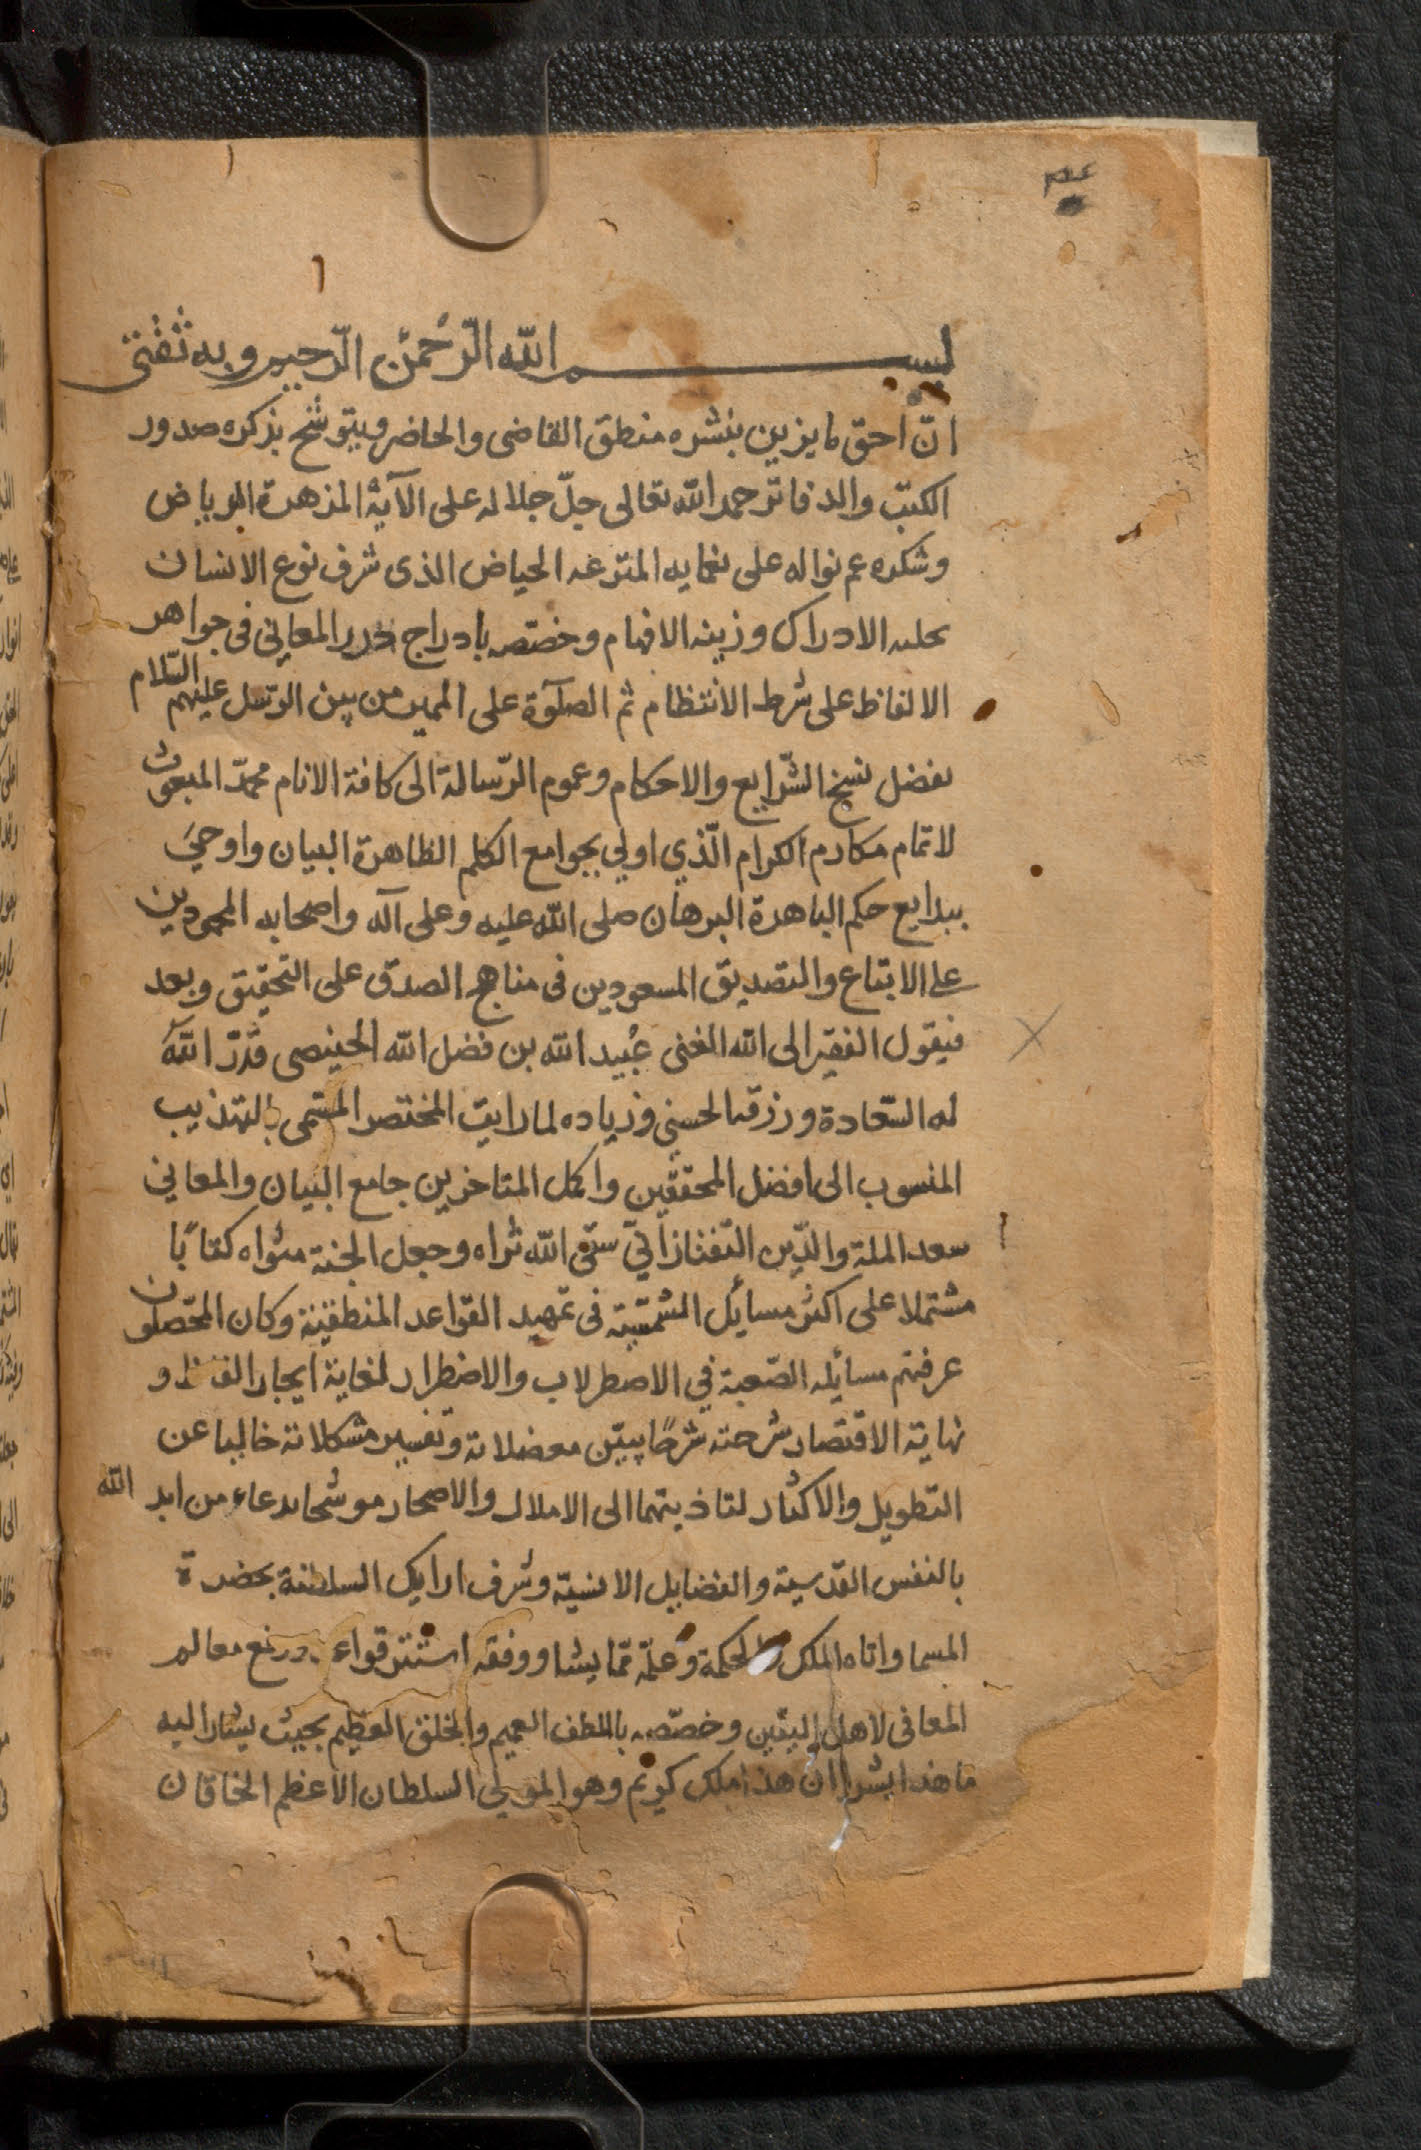 بسم الله الرّحمن الرّحيم وبه ثقتى
انّ احق ما يزين بنشره منطق القاضى والحاضر ويتوشح بذكره صدور
الكتب والدفاتر حمد الله تعالى جلّ جلاله على الآية المزهرة الرياض
وشكره عم نواله على نعمايه المترعه الحياض الذى شرف نوع الانسان
بحليه الادراك وزينه الافهام وخصّصه بادراج درر المعاني في جواهر
الالفاظ على شرط الانتظام ثم الصلوة على المميز من بين الرّسل عليهم السّلام
بفضل نسخ الشّرايع والاحكام وعموم الرّسالة الى كافة الانام محمّد المبعوث
لاتمام مكارم الكرام الّذي اولي بجوامع الكلم الظاهرة البيان واوحيَ
ببدايع حكم الباهرة البرهان صلى الله عليه وعلى آله واصحابه المحمودين
على الاتباع والتصديق المسعودين فى مناهج الصدق على التحقيق وبعد
فيقول الفقير الى الله الغنى عُبيد الله بن فضل الله الخبيصى قدّر اللّه
له السّعادة ورزقه الحسنى وزياده لما رايت المختصر المسمّى بالتهذيب
المنسوب الى افضل المحققين واكمل المتاخرين جامع البيان والمعاني
سعد الملة والدّين التّفتازانيّ سقى الله ثراه وجعل الجنة مثواه كتابًا
مشتملا على اكثر مسائل الشمسية فى تمهيد القواعد المنطقية وكان المحّصلون
عرفتهم مسائله الصّعبة في الاصطرلاب والاضطرار لغاية ايجاز الفاظ و
نهاية الاقتصار شرحته شرحًا يبيّن معضلاته وتفسير مشكلاته خاليا عن
التطويل والاكثار لتاذيتهما الى الاملال والاصحار موشحا بدعاء من ايد الله
بالنفس القدسية والفضايل الانسيّة وشرف ارايك السلطنة بحضرة
السما واتاه الملك والحكمة وعلّمه ممّا يشا ووفقه قواعد ورفع معالم
المعانى لاهل اليقين وخصّصه باللطف العميم والخلق العظيم بحيث يشار اليه
ما هذا بشرا ان هذا ملك كريم وهو المولي السلطان الاعظم الخاقان